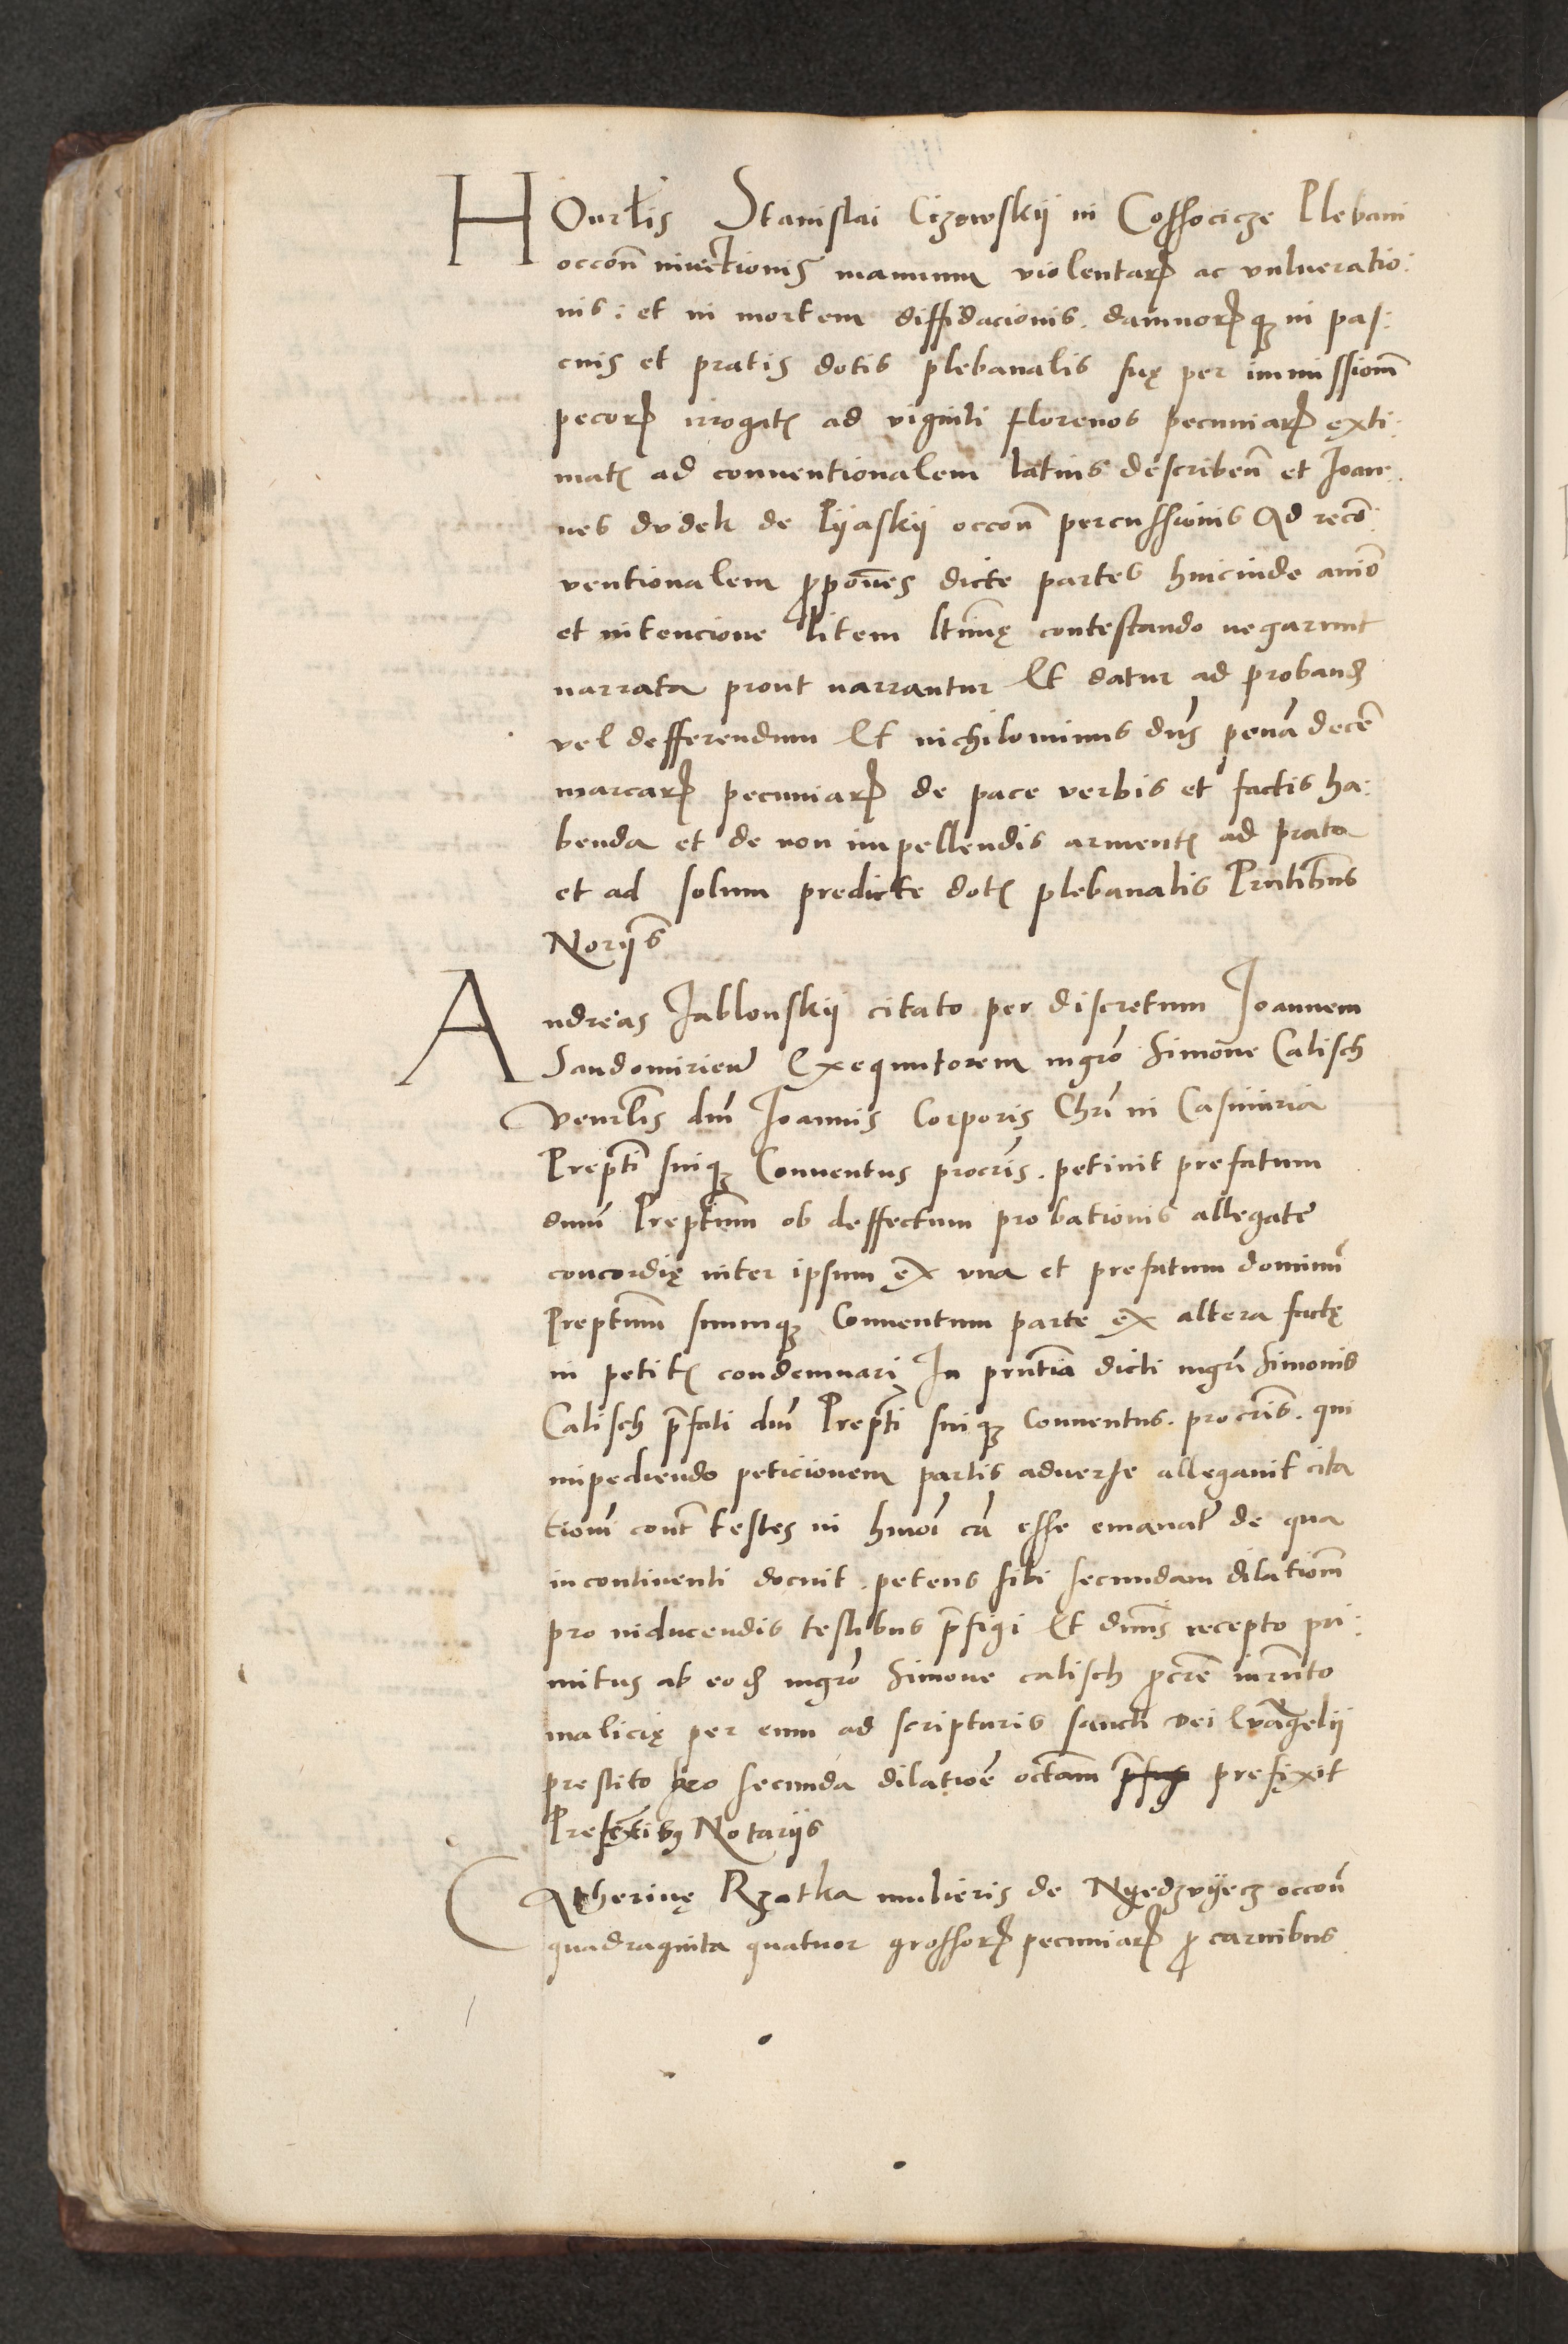 HOnrlis Stanislai Cizowskÿ in Cossocicze Plebani
occoñ iniectionis manuum violentarꝝ ac vulneratio:
nis: et in mortem diffidacionis. damnorꝝqꝫ in pas:
cuis et pratis dotis plebanalis suę per immissionẽ
pecorꝝ irrogatꝭ ad viginti florenos pecuniarꝝ exti:
matꝭ ad conuentionalem latius describeñ et Joan
nes dvdek de Pÿaskÿ occoñ percussionis Ad recõ:
ventionalem ꝓpoñes dicte partes hincinde animo
et intencione litem ltimę contestando negarunt
narrata prout narrantur Et datur ad proband
vel defferendum Et nichilominus dñs penã decẽ
marcarꝝ pecuniarꝝ de pace verbis et factis ha:
benda et de non impellendis armentꝭ ad prata
et ad solum predicte dotꝭ plebanalis Pntibus
Norijs
Andreas Jablonskÿ citato per discretum Joannem
Sandomirieñ Exequutorem mgro Simone Calisch
Venrlis dni Joannis Corporis Chri in Casimiria
Prepti suiqꝫ Conuentus procris. petiuit prefatum
dnum Preptum ob deffectum probationis allegate
concordię inter ipsum ex vna et prefatum dominũ
Preptum suumqꝫ Conuentum parte ex altera factę
in petitꝭ condemnari In pntia dicti mgri Simonis
Calisch p̃fati dni Prepti suiqꝫ Conuentus. procris. qui
impediendo peticionem partis aduerse allegauit cita
tionẽ cont testes in hmoi cã esse emanatã de qua
in continenti docuit. petens sibi secundam dilationẽ
pro inducendis testibus p̃figi Et dnus recepto pri:
mitus ab eod mgro Simone calisch procre iurnto
malicię per eum ad scripturis sancti dei Evãgelij
prestito pro secunda dilatioẽ octam p̃fig prefixit
Presẽtibꝰ Notarijs
Catherinę Rzatka mulieris de Nyedzvÿecz occoñ
quadraginta quatuor grossorꝝ pecuniarꝝ ꝓ carnibus